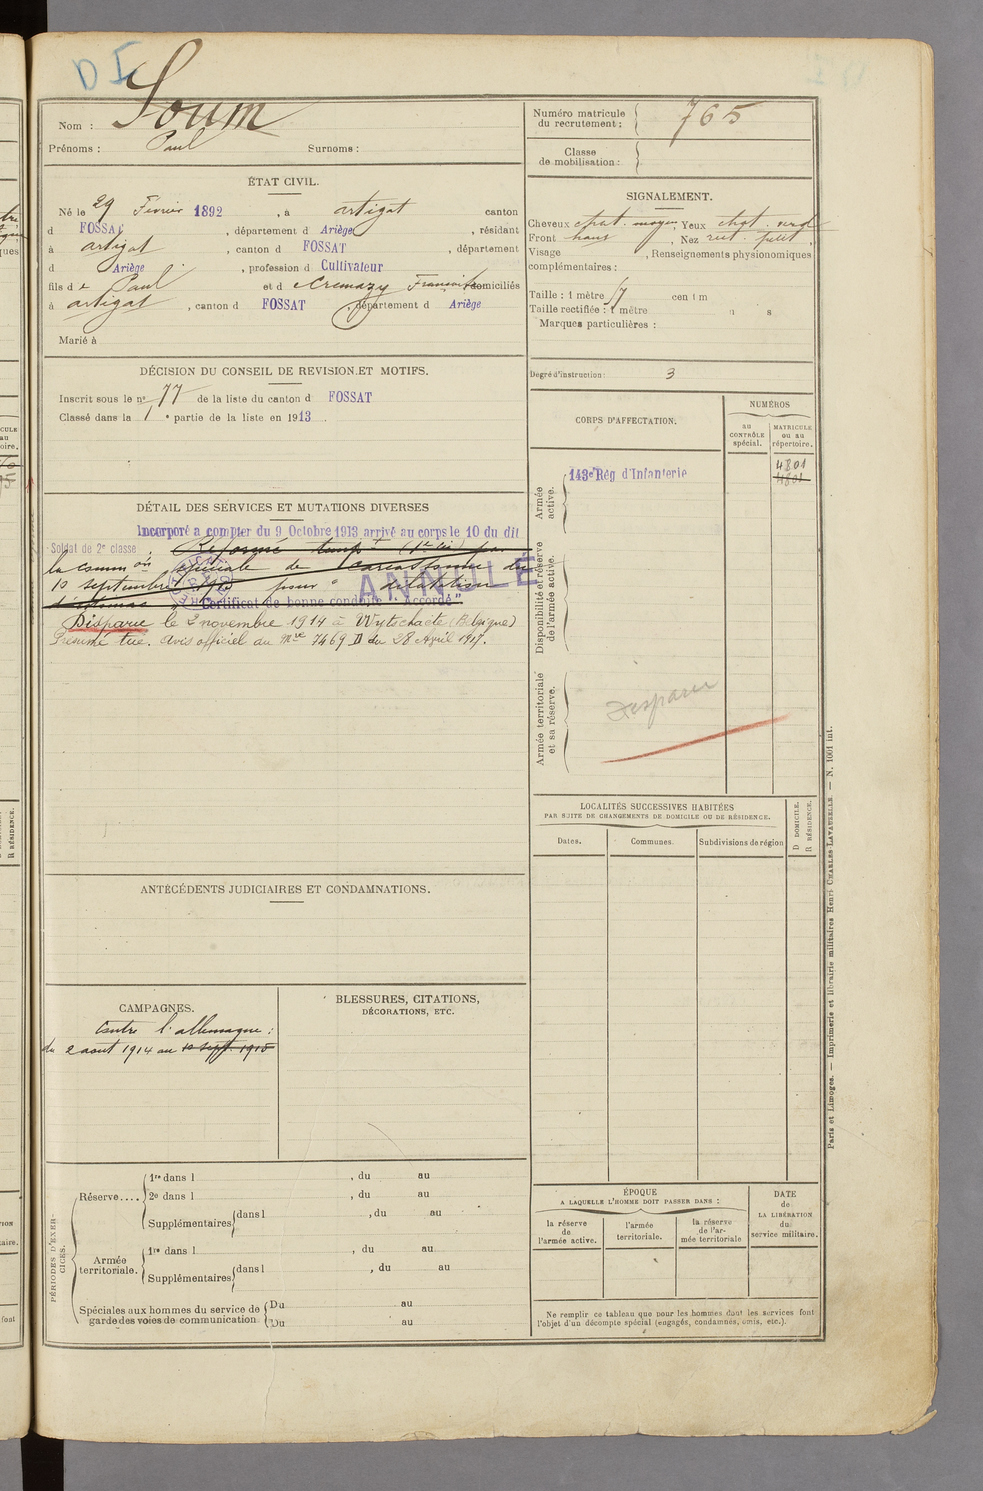 D I
Nom : Soum
Prénoms : Paul Surnoms :
Numéro matricule
du recrutement : 765
Classe
de mobilisation :
ÉTAT CIVIL.
Né le 29 Février 1892, à artigat canton
d FOSSAT, département d Ariège, résidant
à artigat, canton d FOSSAT, département
d Ariège, profession d Cultivateur
fils de Paul et d domiciliés
à artigat, canton d FOSSAT, département d Ariège
Marié à
SIGNALEMENT.
Cheveux chat. moyen, Yeux chat. verd
Front haut, Nez rect.
Visage , Renseignements physionomiques
complémentaires :
Taille : 1 mètre 57 centim
Taille rectifiée : 1 mètre
Marques particulières :
Degré d'instruction : 3
DÉCISION DU CONSEIL DE REVISION ET MOTIFS.
Inscrit sous le nº 77 de la liste du canton d FOSSAT
Classé dans la 1 e partie de la liste en 1913.
CORPS D'AFFECTATION.
NUMÉROS
au
CONTRÔLE
spécial.
MATRICULE
ou au
répertoire.
Armée
active.
143e Rég d'Infanterie
4801
4801
Disponibilité et réserve
de l'armée active.
Armée territoriale
et sa réserve.
Disparu
DÉTAIL DES SERVICES ET MUTATIONS DIVERSES
Incorporé a compter du 9 Octobre 1913 arrivé au corps le 10 du dit
Soldat de 2e classe. Réformé temp. par
la comm on spéciale de Carcassonne du
10 septembre 1915 pour " dilatation
d'estomac " "Certificat de bonne conduite Accordé"
ANNULÉ
Disparu le 2 novembre 1914 à Wytschaete (Belgique)
Présumé tué. Avis officiel du Mre 7469 D du 28 Avril 1917.
LOCALITÉS SUCCESSIVES HABITÉES
PAR SUITE DE CHANGEMENTS DE DOMICILE OU DE RÉSIDENCE.
Dates.
Communes.
Subdivisions de région
D DOMICILE.
R RÉSIDENCE.
ANTÉCÉDENTS JUDICIAIRES ET CONDAMNATIONS.
CAMPAGNES.
Contre l'allemagne :
du 2 aout 1914 au 10 sept. 1915
BLESSURES, CITATIONS,
DÉCORATIONS, ETC.
PÉRIODES D'EXER-
CICES.
Réserve....
1re dans l , du au
2e dans l , du au
Supplémentaires dans l , du au
Armée
territoriale.
1re dans l , du au
Supplémentaires dans l , du au
Spéciales aux hommes du service de
garde des voies de communication
Du au
Du au
ÉPOQUE
A LAQUELLE L'HOMME DOIT PASSER DANS :
la réserve
de
l'armée active.
l'armée
territoriale.
la réserve
de l'ar-
mée territoriale
DATE
de
LA LIBÉRATION
du
service militaire.
Ne remplir ce tableau que pour les hommes dont les services font
l'objet d'un décompte spécial (engagés, condamnés, omis, etc.).
Paris et Limoges. — Imprimerie et librairie militaires Henri CHARLES-LAVAUZELLE. — N. 1001 int.